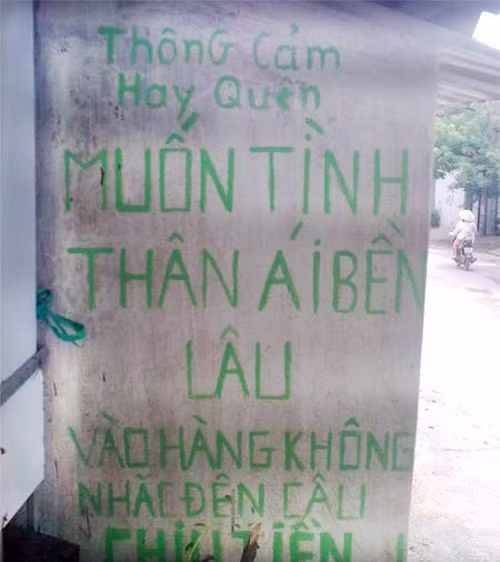 Thông Cảm
Hay Quên
MUỐN TÌNH
THÂN ÁI BỀN
LÂU
VÀO HÀNG KHÔNG
NHẮC ĐẾN CÂU
CHỊU TIỀN